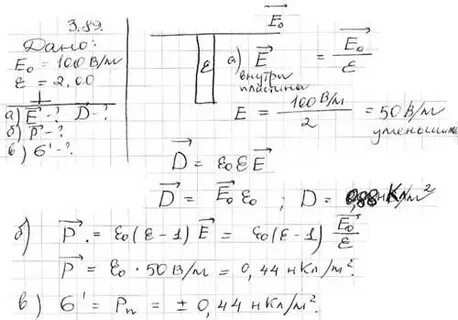 3.89.
Дано:
E₀ = 100 В/м
ε = 2,00
а) E⃗ -? D⃗ -?
б) P⃗ -?
в) σ' -?
E₀⃗
ε
а) E⃗ = E₀⃗/ε
внутри
пластины
E = 100 В/м / 2 = 50 В/м
D⃗ = ε₀ε E⃗
D⃗ = E₀⃗ ε₀ ; D = 0,88 нКл/м²
б) P⃗ = ε₀(ε-1) E⃗ = ε₀(ε-1) E₀⃗/ε
P⃗ = ε₀ · 50 В/м = 0,44 нКл/м².
в) σ' = Pn = ± 0,44 нКл/м².